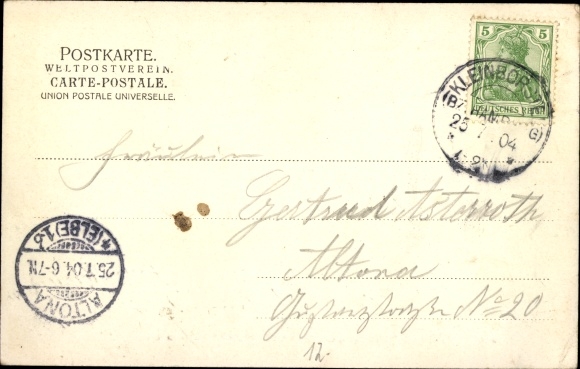 POSTKARTE.
WELTPOSTVEREIN.
CARTE-POSTALE.
UNION POSTALE UNIVERSELLE.
5 5
DEUTSCHES REICH
KLEINBOR
25 7 04
Fräulein
Gertrud Astorroth
Altona
No 20
12
ALTONA
25.7.04.6-7N.
*(ELBE)1b